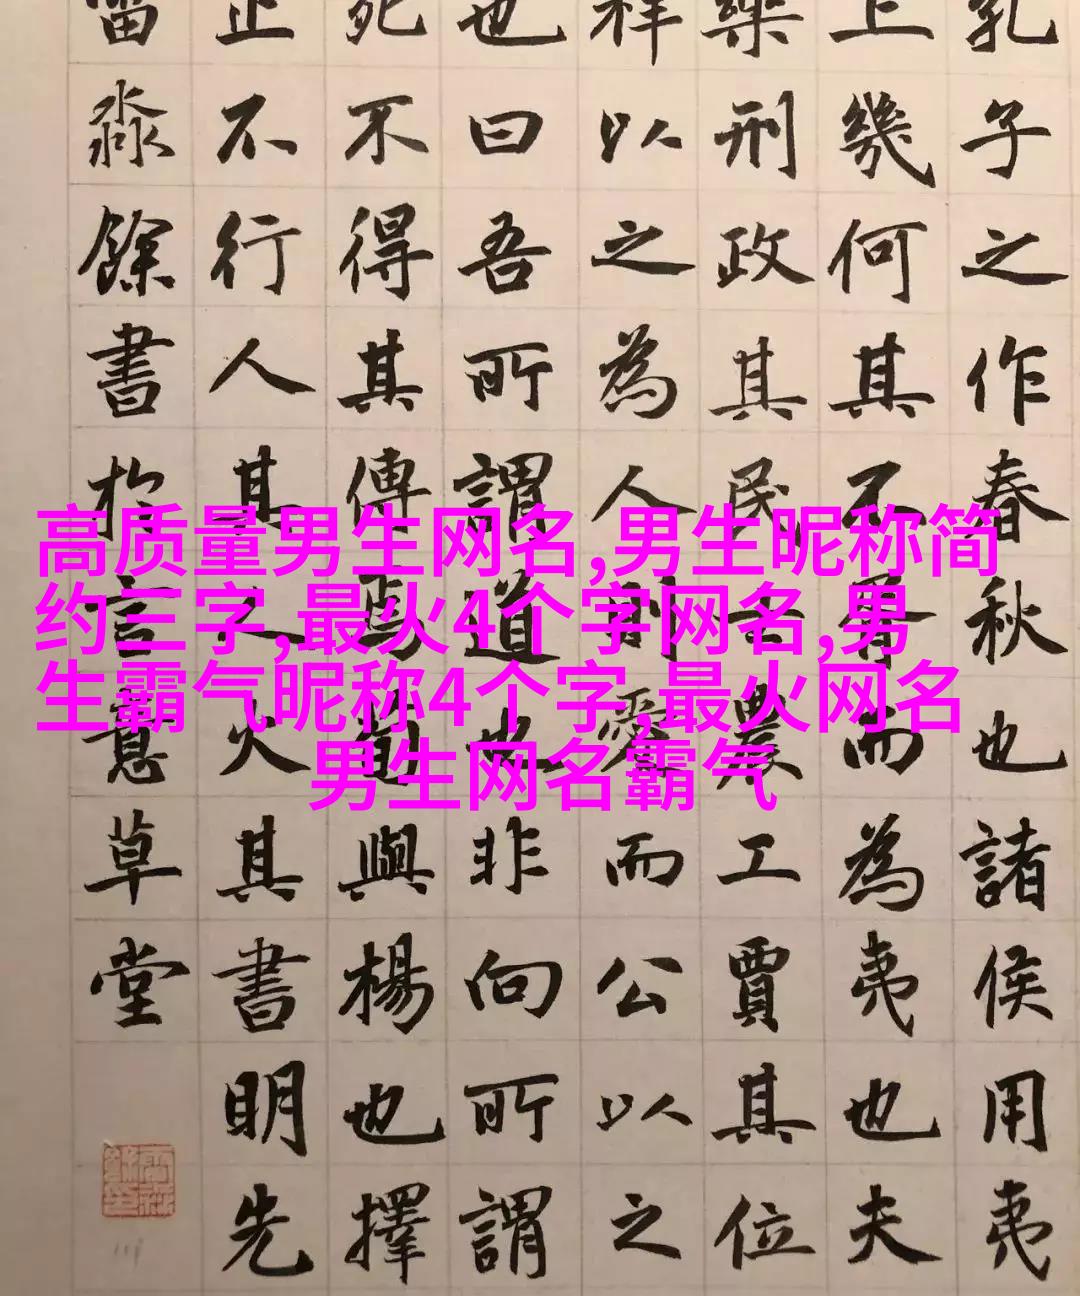 孔子之作春秋也諸侯用夷
上幾何其不胥而為夷也夫
樂刑政其民士農工賈其位
祥以之為人則愛而公以之
也曰吾所謂道也非向所謂
死不得其傳焉荀與楊也擇
止不行人其人火其書明先
淼餘書於言意草堂
高质量男生网名,男生昵称简
约三字,最火4个字网名,男
生霸气昵称4个字,最火网名
男生网名霸气